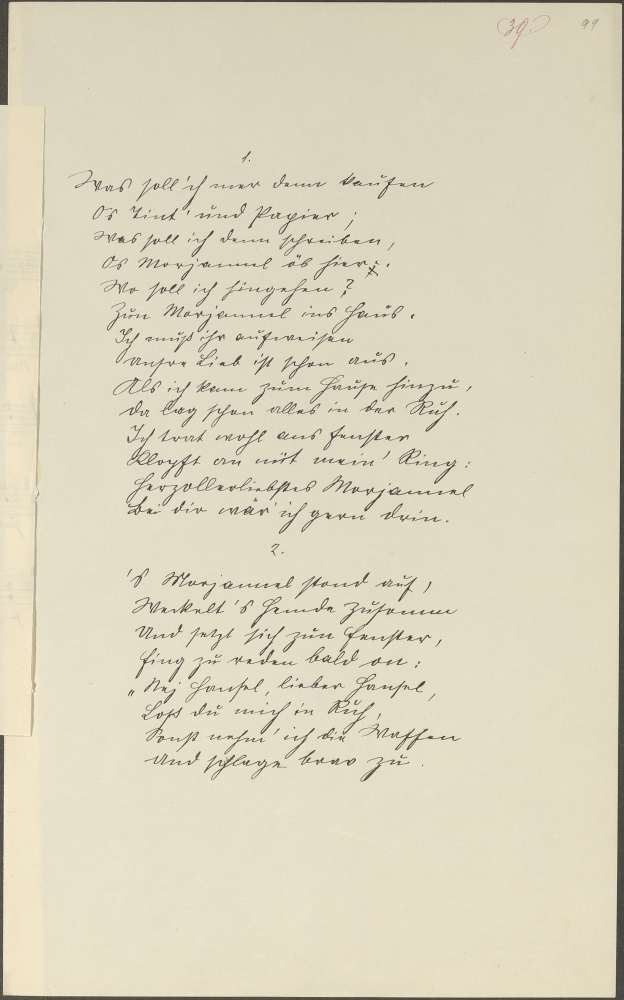 39. 99
1.
Was soll ich mer denn kaufen
Os Tint' und Papier;
Was soll ich denn schreiben,
Os Marjannel ob hier.
Wo soll ich hingehen?
Zum Marjannel ins Haus.
Ich muß ihr aufweisen
unsre Lieb ist schon aus.
Als ich kam zum Hause hinzu,
Da lag schon alles in der Ruh.
Ich trat wohl ans Fenster
Klopft an mit mein' Ring:
Herzallerliebstes Marjannel
Bei dir wär' ich gern drin.
2.
's Marjannel stand auf,
Weckelt's Hemde zusamm
Und setzt sich zum Fenster,
Fing zu reden bald an:
"Nej Hansel, lieber Hansel,
Loß du mich in Ruh,
Sonst nehm' ich die Waffen
Und schlage brav zu.